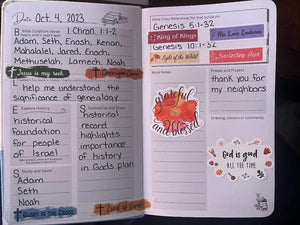 Date Oct. 4, 2023
1 Chron. 1:1-2
Adam, Seth, Enosh, Kenan,
Mahalalel, Jared, Enoch,
Methuselah, Lamech, Noah
Jesus is my rock
help me understand the
significance of genealogy
Explore History
historical
foundation
for people
of Israel
Summarize and Pray
historical
record
highlights
importance
of history
in God's plan
Study and Savor
Adam
Seth
Noah
Lord of Lords
Genesis 5:1-32
King of Kings
His Love Endures
Genesis 10:1-32
Light of the World
Everlasting Hope
More Notes
grateful
and
blessed
Praises and Prayers
thank you for
my neighbors
Drawing, stickers or comments
God is good
ALL THE TIME